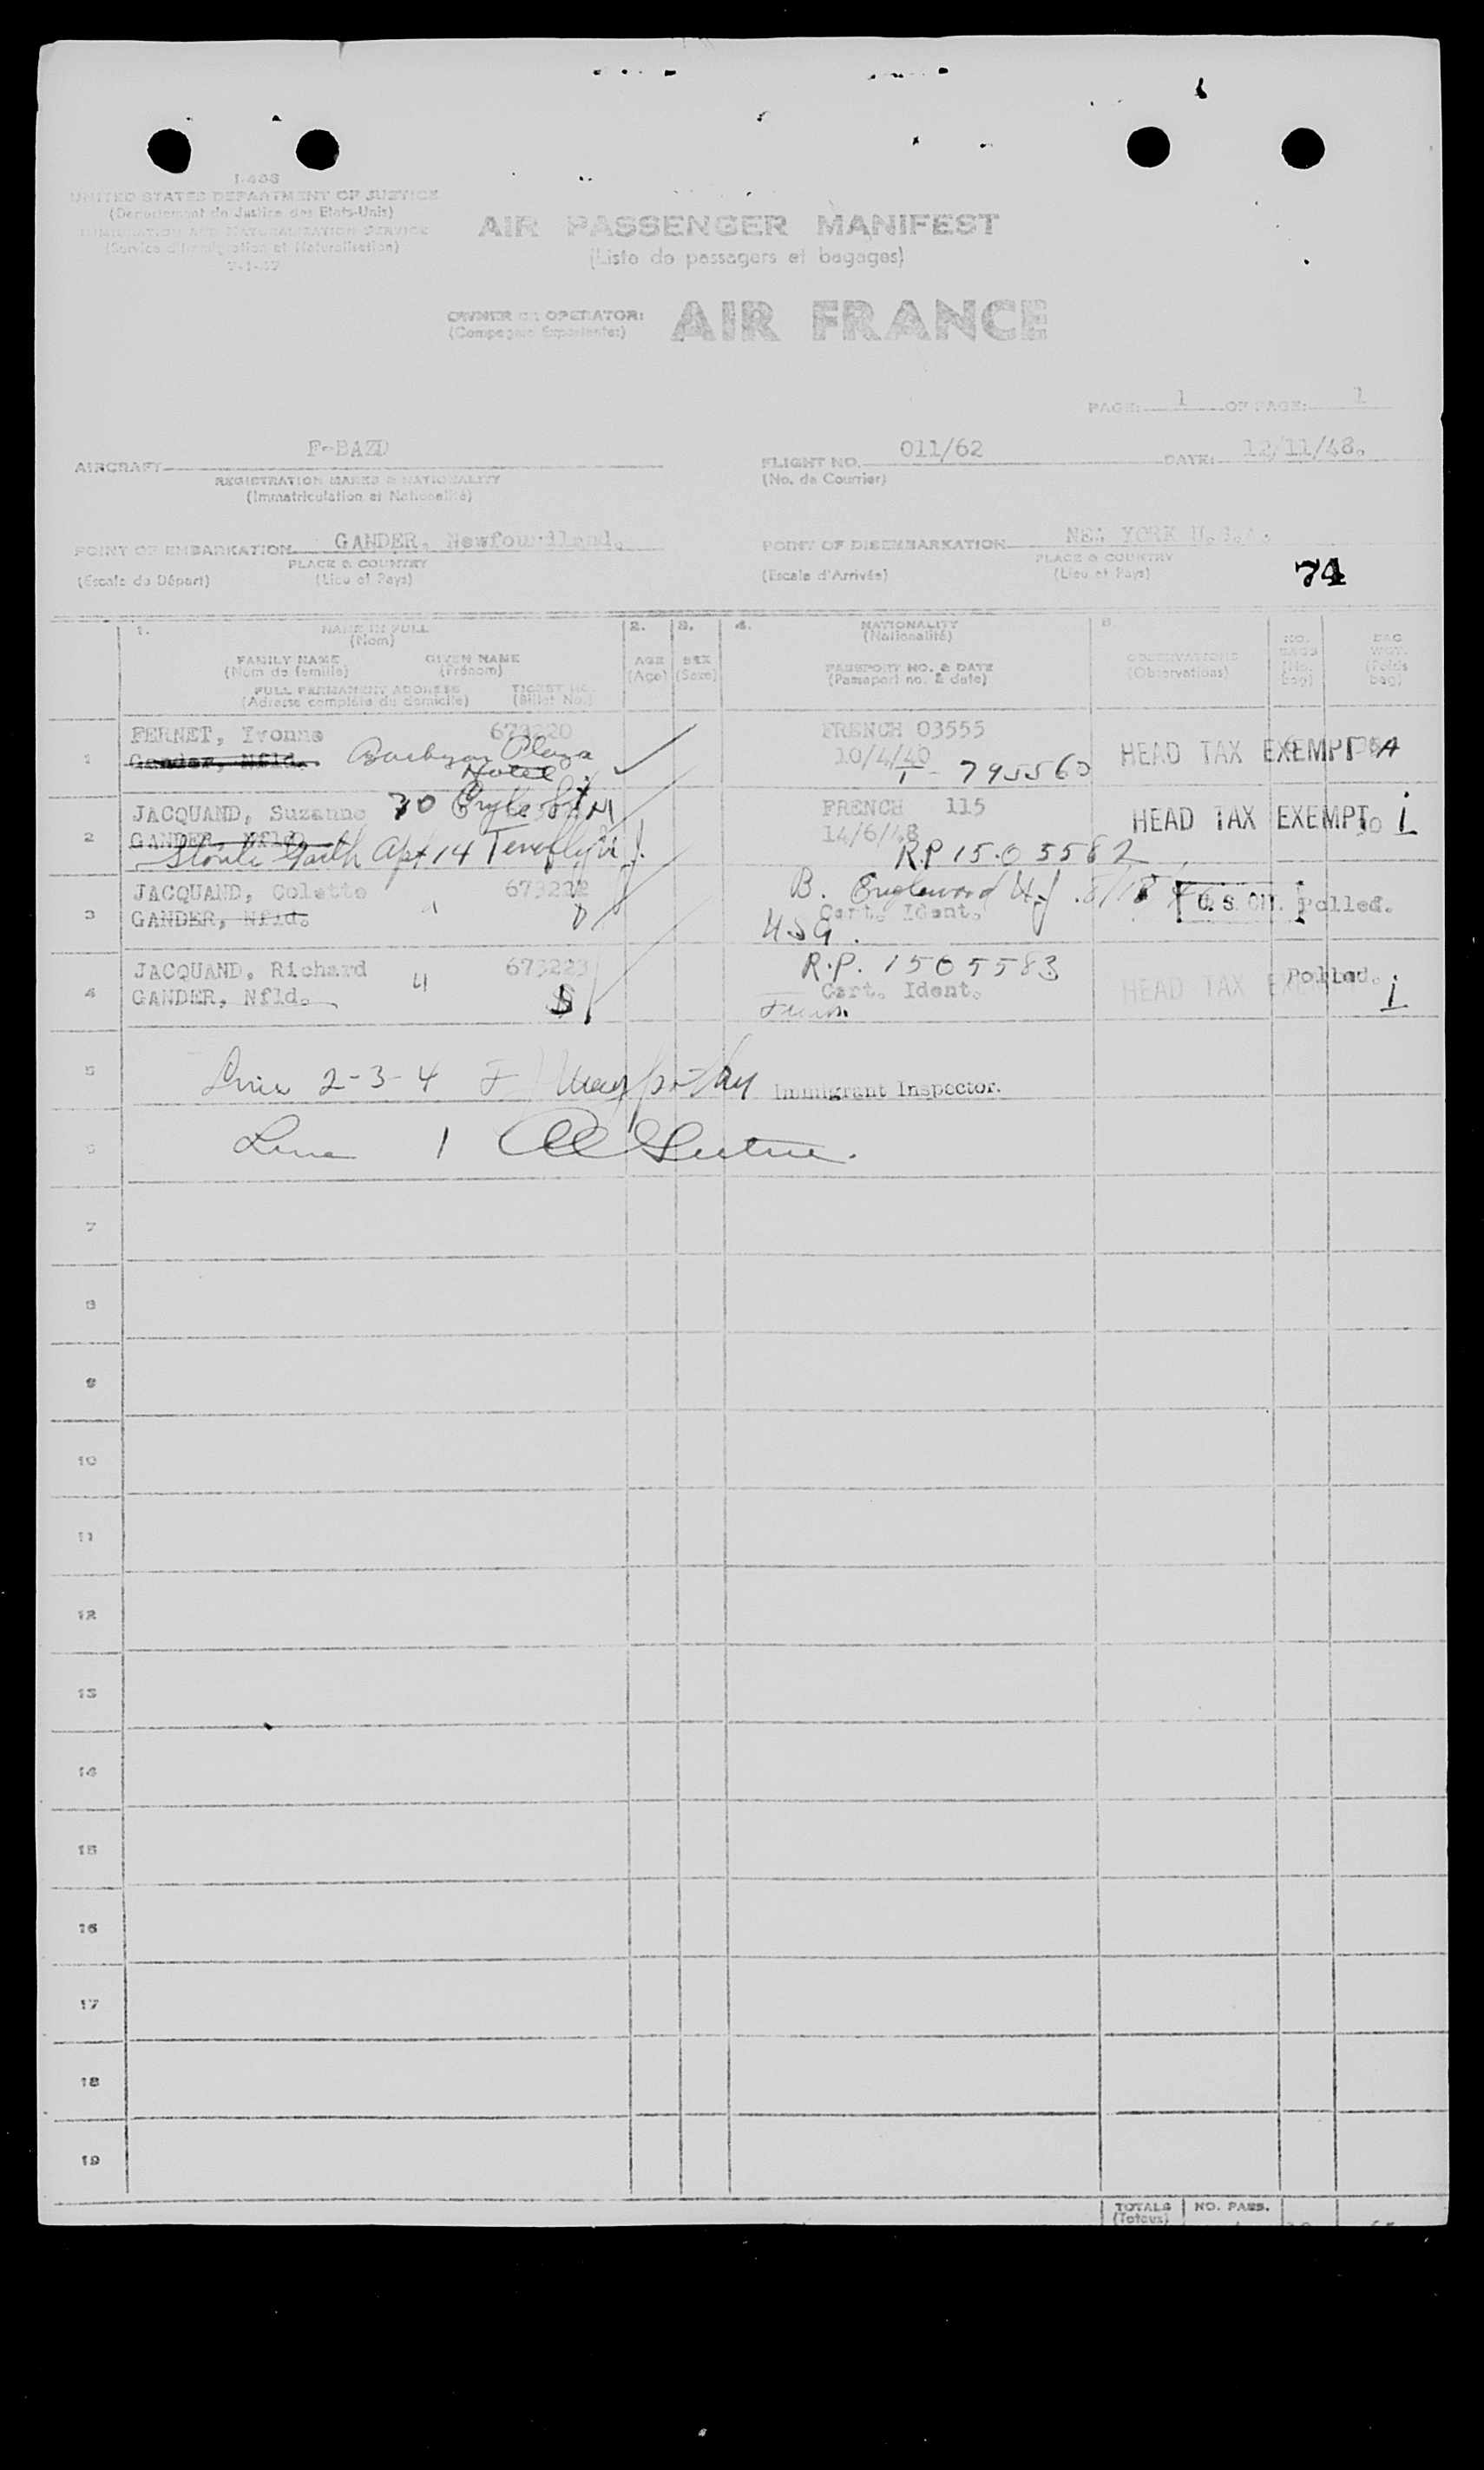 I-466
UNITED STATES DEPARTMENT OF JUSTICE
(Departement de Justice des Etats-Unis)
IMMIGRATION AND NATURALIZATION SERVICE
(Service d'Immigration et Naturalisation)
AIR PASSENGER MANIFEST
(Liste de passagers et bagages)
OWNER OR OPERATOR: AIR FRANCE
(Compagnie Exploitante:)
PAGE: 1 OF PAGE: 1
AIRCRAFT F-BAZD
REGISTRATION MARKS & NATIONALITY
(Immatriculation et Nationalité)
FLIGHT NO. 011/62 DATE: 12/11/48.
(No. de Courrier)
POINT OF EMBARKATION GANDER, Newfoundland.
PLACE & COUNTRY
(Escale du Départ) (Lieu et Pays)
POINT OF DISEMBARKATION NEW YORK U.S.A.
PLACE & COUNTRY
(Escale d'Arrivée) (Lieu et Pays)
74
1. NAME IN FULL 2. 3. 4. NATIONALITY
(Nom) (Nationalité)
FAMILY NAME GIVEN NAME AGE SEX PASSPORT NO. & DATE OBSERVATIONS NO. BAGS BAG WGT.
(Nom de famille) (Prénom) (Age) (Sexe) (Passeport no. & date) (Observations) (No. bag) (Poids bag)
FULL PERMANENT ADDRESS TICKET NO.
(Adresse complète du domicile) (Billet No.)
1 FERNET, Yvonne 673220 FRENCH 03555
Gander, Nfld. Barbizon Plaza Hotel 10/4/40 HEAD TAX EXEMPT A
T- 795560
2 JACQUAND, Suzanne 30 FRENCH 115 HEAD TAX EXEMPT
GANDER, Nfld. 14/6/48
Apt 14 Tenafly N.J. R.P. 1505582
3 JACQUAND, Colette 673222 B. Englewood N.J.
GANDER, Nfld. Cert. Ident. Polled.
4 JACQUAND, Richard 4 673223 R.P. 1505583
GANDER, Nfld. Cert. Ident. HEAD TAX Polled.
5 Line 2-3-4 Immigrant Inspector.
6 Line 1
7
8
9
10
11
12
13
14
15
16
17
18
19
TOTALS NO. PASS.
(Totaux)